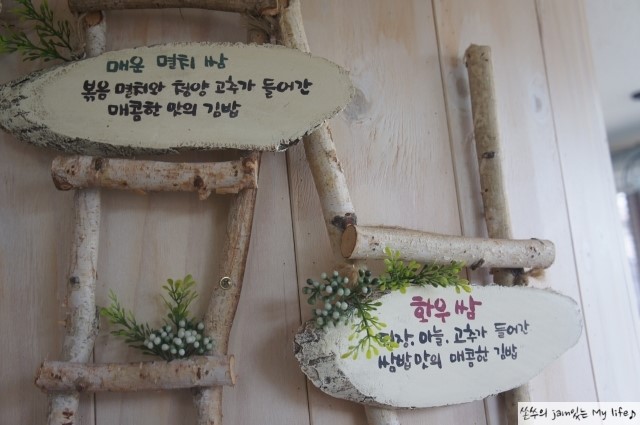 매운 멸치 쌈
볶음 멸치와 청양 고추가 들어간
매콤한 맛의 김밥
화우 쌈
마늘, 고추가 들어간
쌈밥 맛의 매콤한 김밥
쏠쑤의 jam있는 My life♪